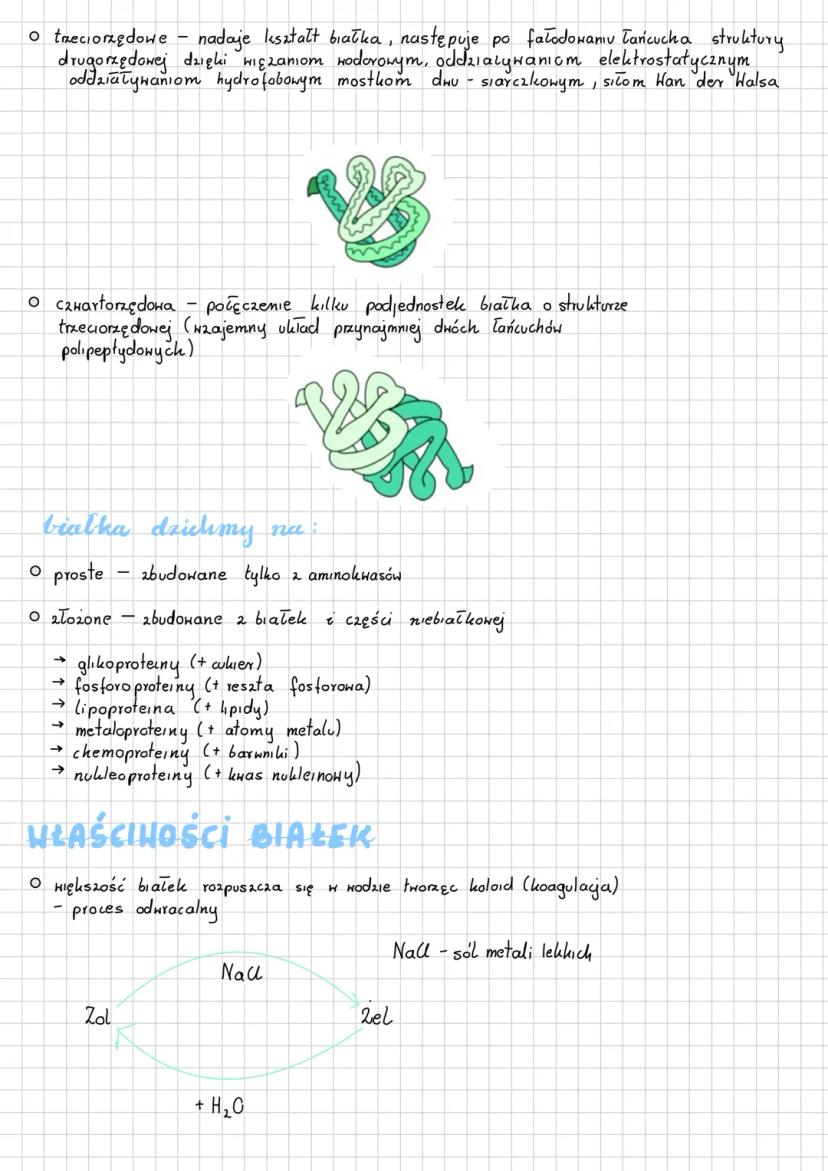 ○ trzeciorzędowe – nadaje kształt białka, następuje po fałodowaniu łańcucha struktury
drugorzędowej dzięki wiązaniom wodorowym, oddziaływaniom elektrostatycznym
oddziaływaniom hydrofobowym mostkom dwu - siarczkowym, siłom Wan der Walsa
○ czwartorzędowa – połączenie kilku podjednostek białka o strukturze
trzeciorzędowej (wzajemny układ przynajmniej dwóch łańcuchów
polipeptydowych)
białka dzielimy na:
○ proste – zbudowane tylko z aminokwasów
○ złożone – zbudowane z białek i części niebiałkowej
→ glikoproteiny (+ cukier)
→ fosforoproteiny (+ reszta fosforowa)
→ lipoproteina (+ lipidy)
→ metaloproteiny (+ atomy metalu)
→ chemoproteiny (+ barwniki)
→ nukleoproteiny (+ kwas nukleinowy)
WŁAŚCIWOŚCI BIAŁEK
○ większość białek rozpuszcza się w wodzie tworząc koloid (koagulacja)
- proces odwracalny
NaCl - sól metali lekkich
NaCl
Zol
żel
+ H₂O